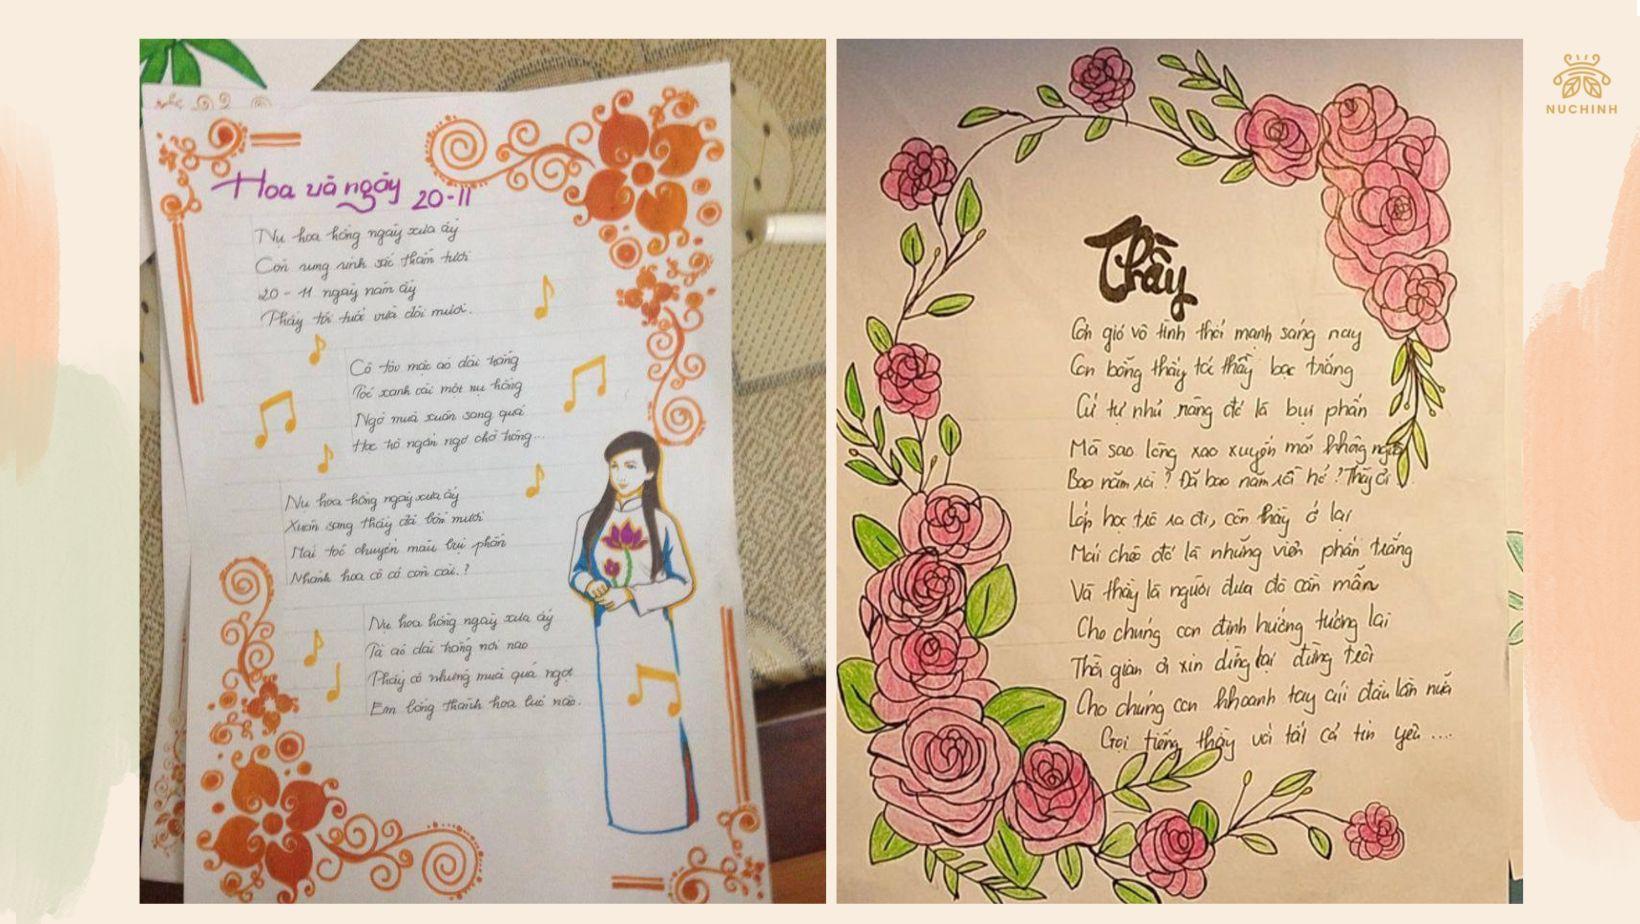 Hoa và ngày 20-11
Nụ hoa hồng ngày xưa ấy
Còn rung rinh sắc thắm tươi
20-11 ngày năm ấy
Thầy tôi tuổi vừa đôi mươi.
Cô tôi mặc áo dài trắng
Tóc xanh cài một nụ hồng
Ngỡ mùa xuân sang quá
Học trò ngẩn ngơ chờ trông...
Nụ hoa hồng ngày xưa ấy
Xuân sang thầy đã bốn mươi
Mái tóc chuyển màu bụi phấn
Nhành hoa cô có còn cài.?
Nụ hoa hồng ngày xưa ấy
Tà áo dài trắng nơi nao
Thầy cô những mùa quả ngọt
Em bỗng thành hoa lúc nào.
Thầy
Cơn gió vô tình thổi mạnh sáng nay
Con bỗng thấy tóc thầy bạc trắng
Cứ tự nhủ rằng đó là bụi phấn
Mà sao lòng xao xuyến mãi không
Bao năm rồi ? Đã bao năm rồi hở ? Thầy ơi
Lớp học trò ra đi, còn thầy ở lại
Mái chèo đó là những viên phấn trắng
Và thầy là người đưa đò cần mẫn
Cho chúng con định hướng tương lai
Thời gian ơi xin dừng lại đừng trôi
Cho chúng con khoanh tay cúi đầu lần nữa
Gọi tiếng thầy với tất cả tin yêu ....
NUCHINH